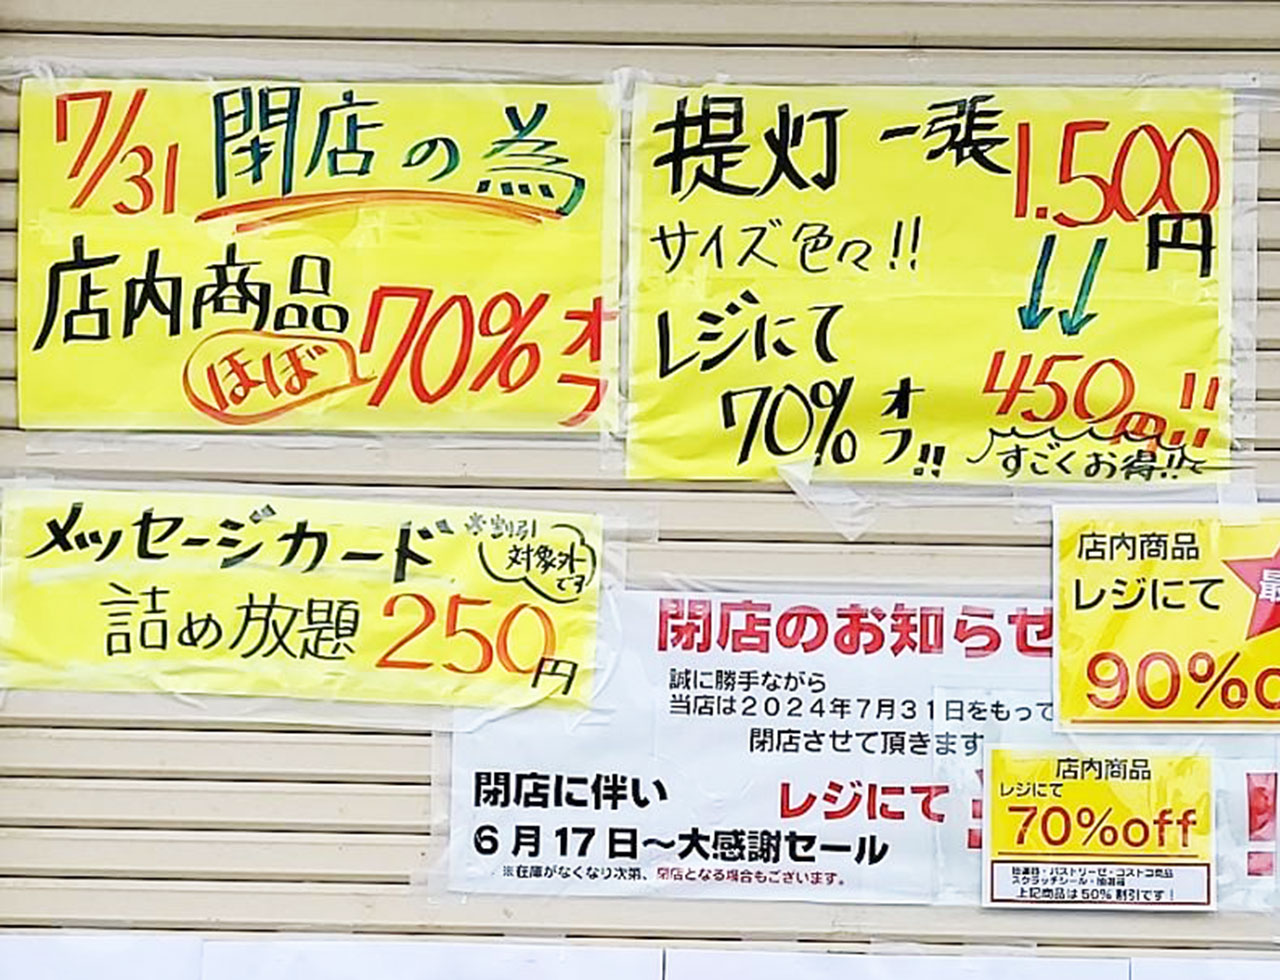 7/31 閉店の為
店内商品
ほぼ 70% オフ
提灯 一張 1.500円
サイズ色々!!
レジにて
70% オフ!!
450円!!
すごくお得!!
メッセージカード ※割引対象外です
詰め放題 250円
閉店のお知らせ
誠に勝手ながら
当店は2024年7月31日をもって
閉店させて頂きます
閉店に伴い レジにて
6月17日～大感謝セール
※在庫がなくなり次第、閉店となる場合もございます。
店内商品
レジにて
最
90%o
店内商品
レジにて
70%off
・パストリーゼ・コストコ商品
スクラッチシール・抽選箱
上記商品は50%割引です!